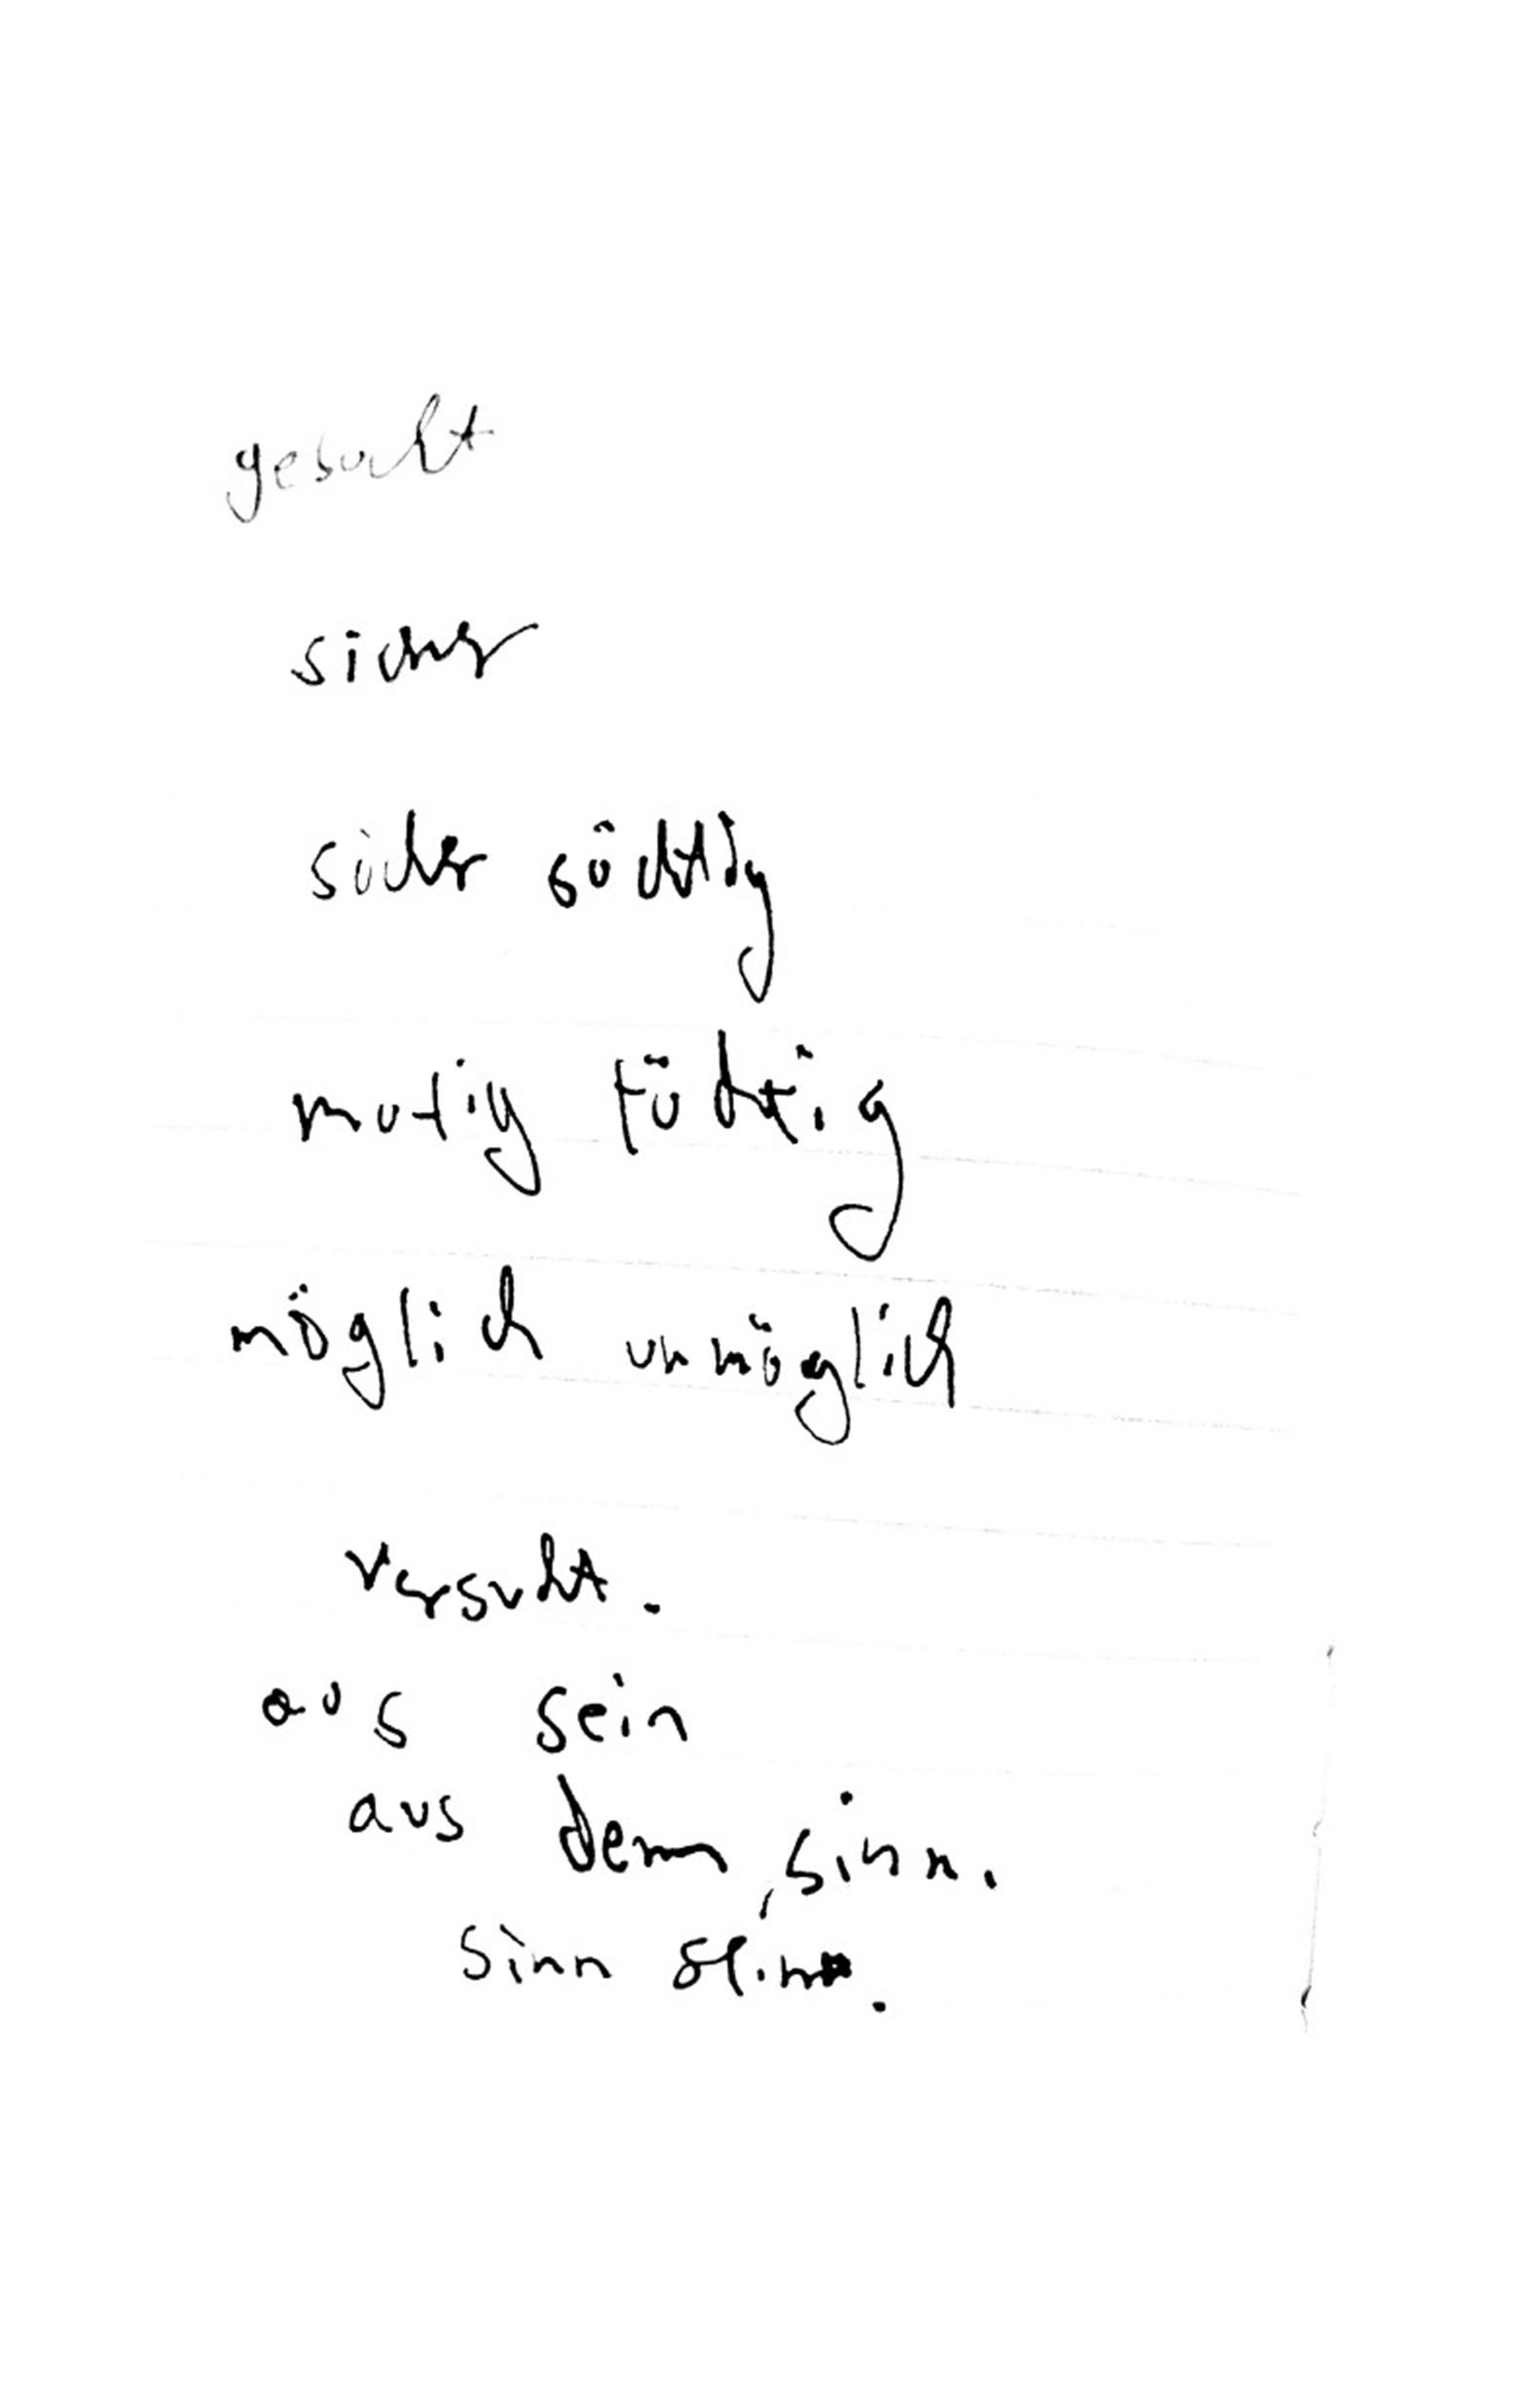 gesucht
sicher
sicher süchtig
mutig tüchtig
möglich unmöglich
versucht.
aus sein
aus dem sinn.
sinn sein.